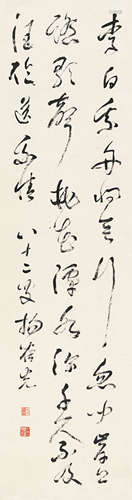 李白乘舟将欲行忽闻岸上
踏歌声桃花潭水深千尺不及
汪伦送我情
八十二叟